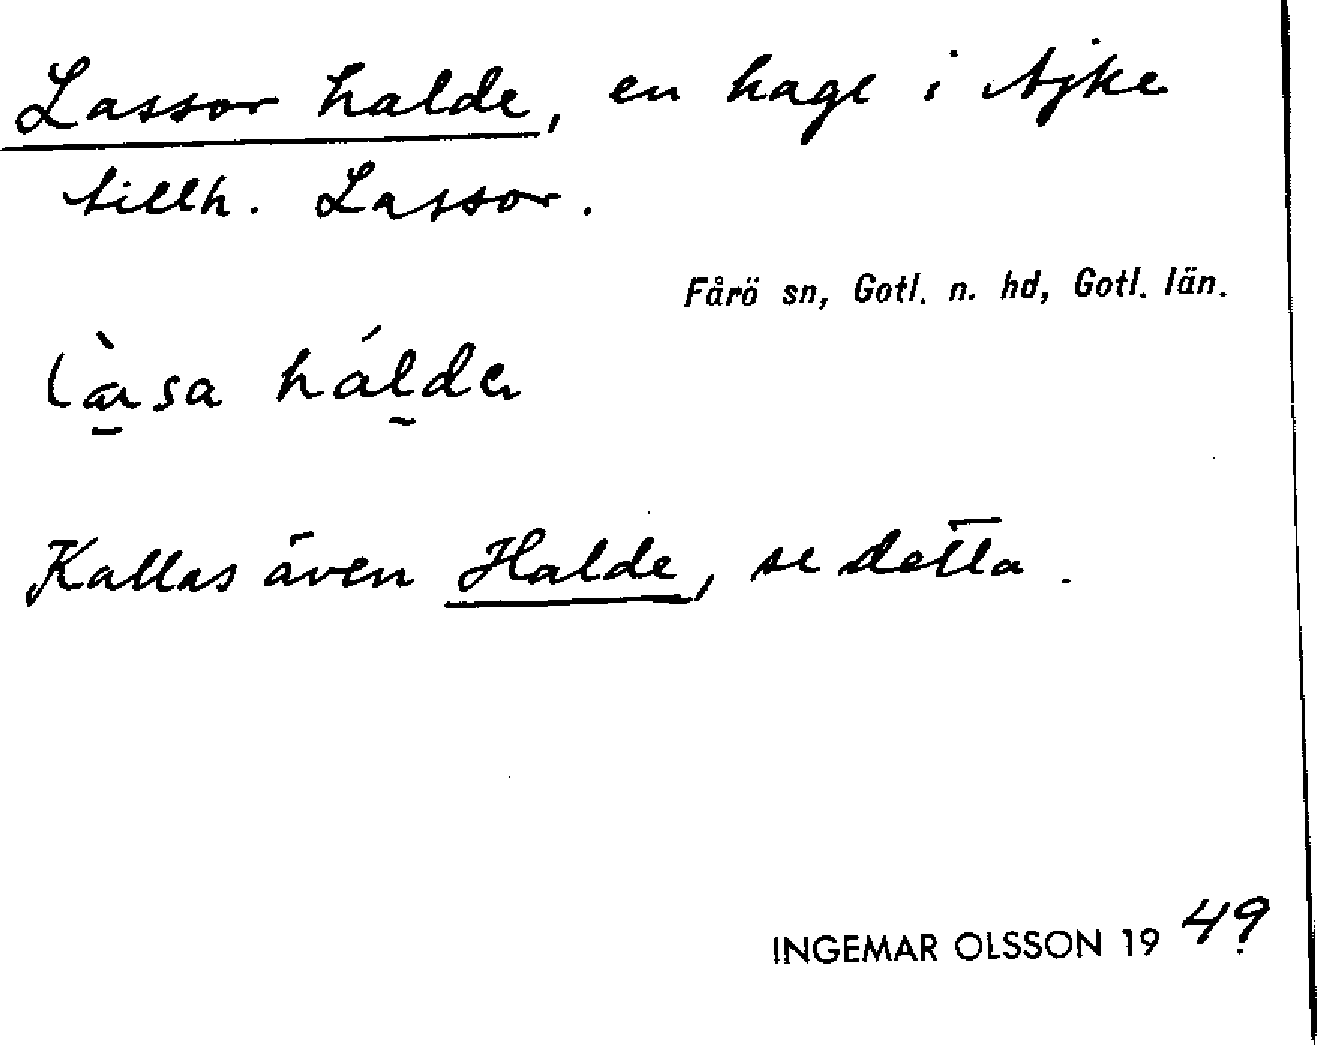 Lassor halde, en hage i Ajke
tillh. Lassor.
Fårö sn, Gotl. n. hd, Gotl. län.
Kallas även Halde, se detta.
INGEMAR OLSSON 1949